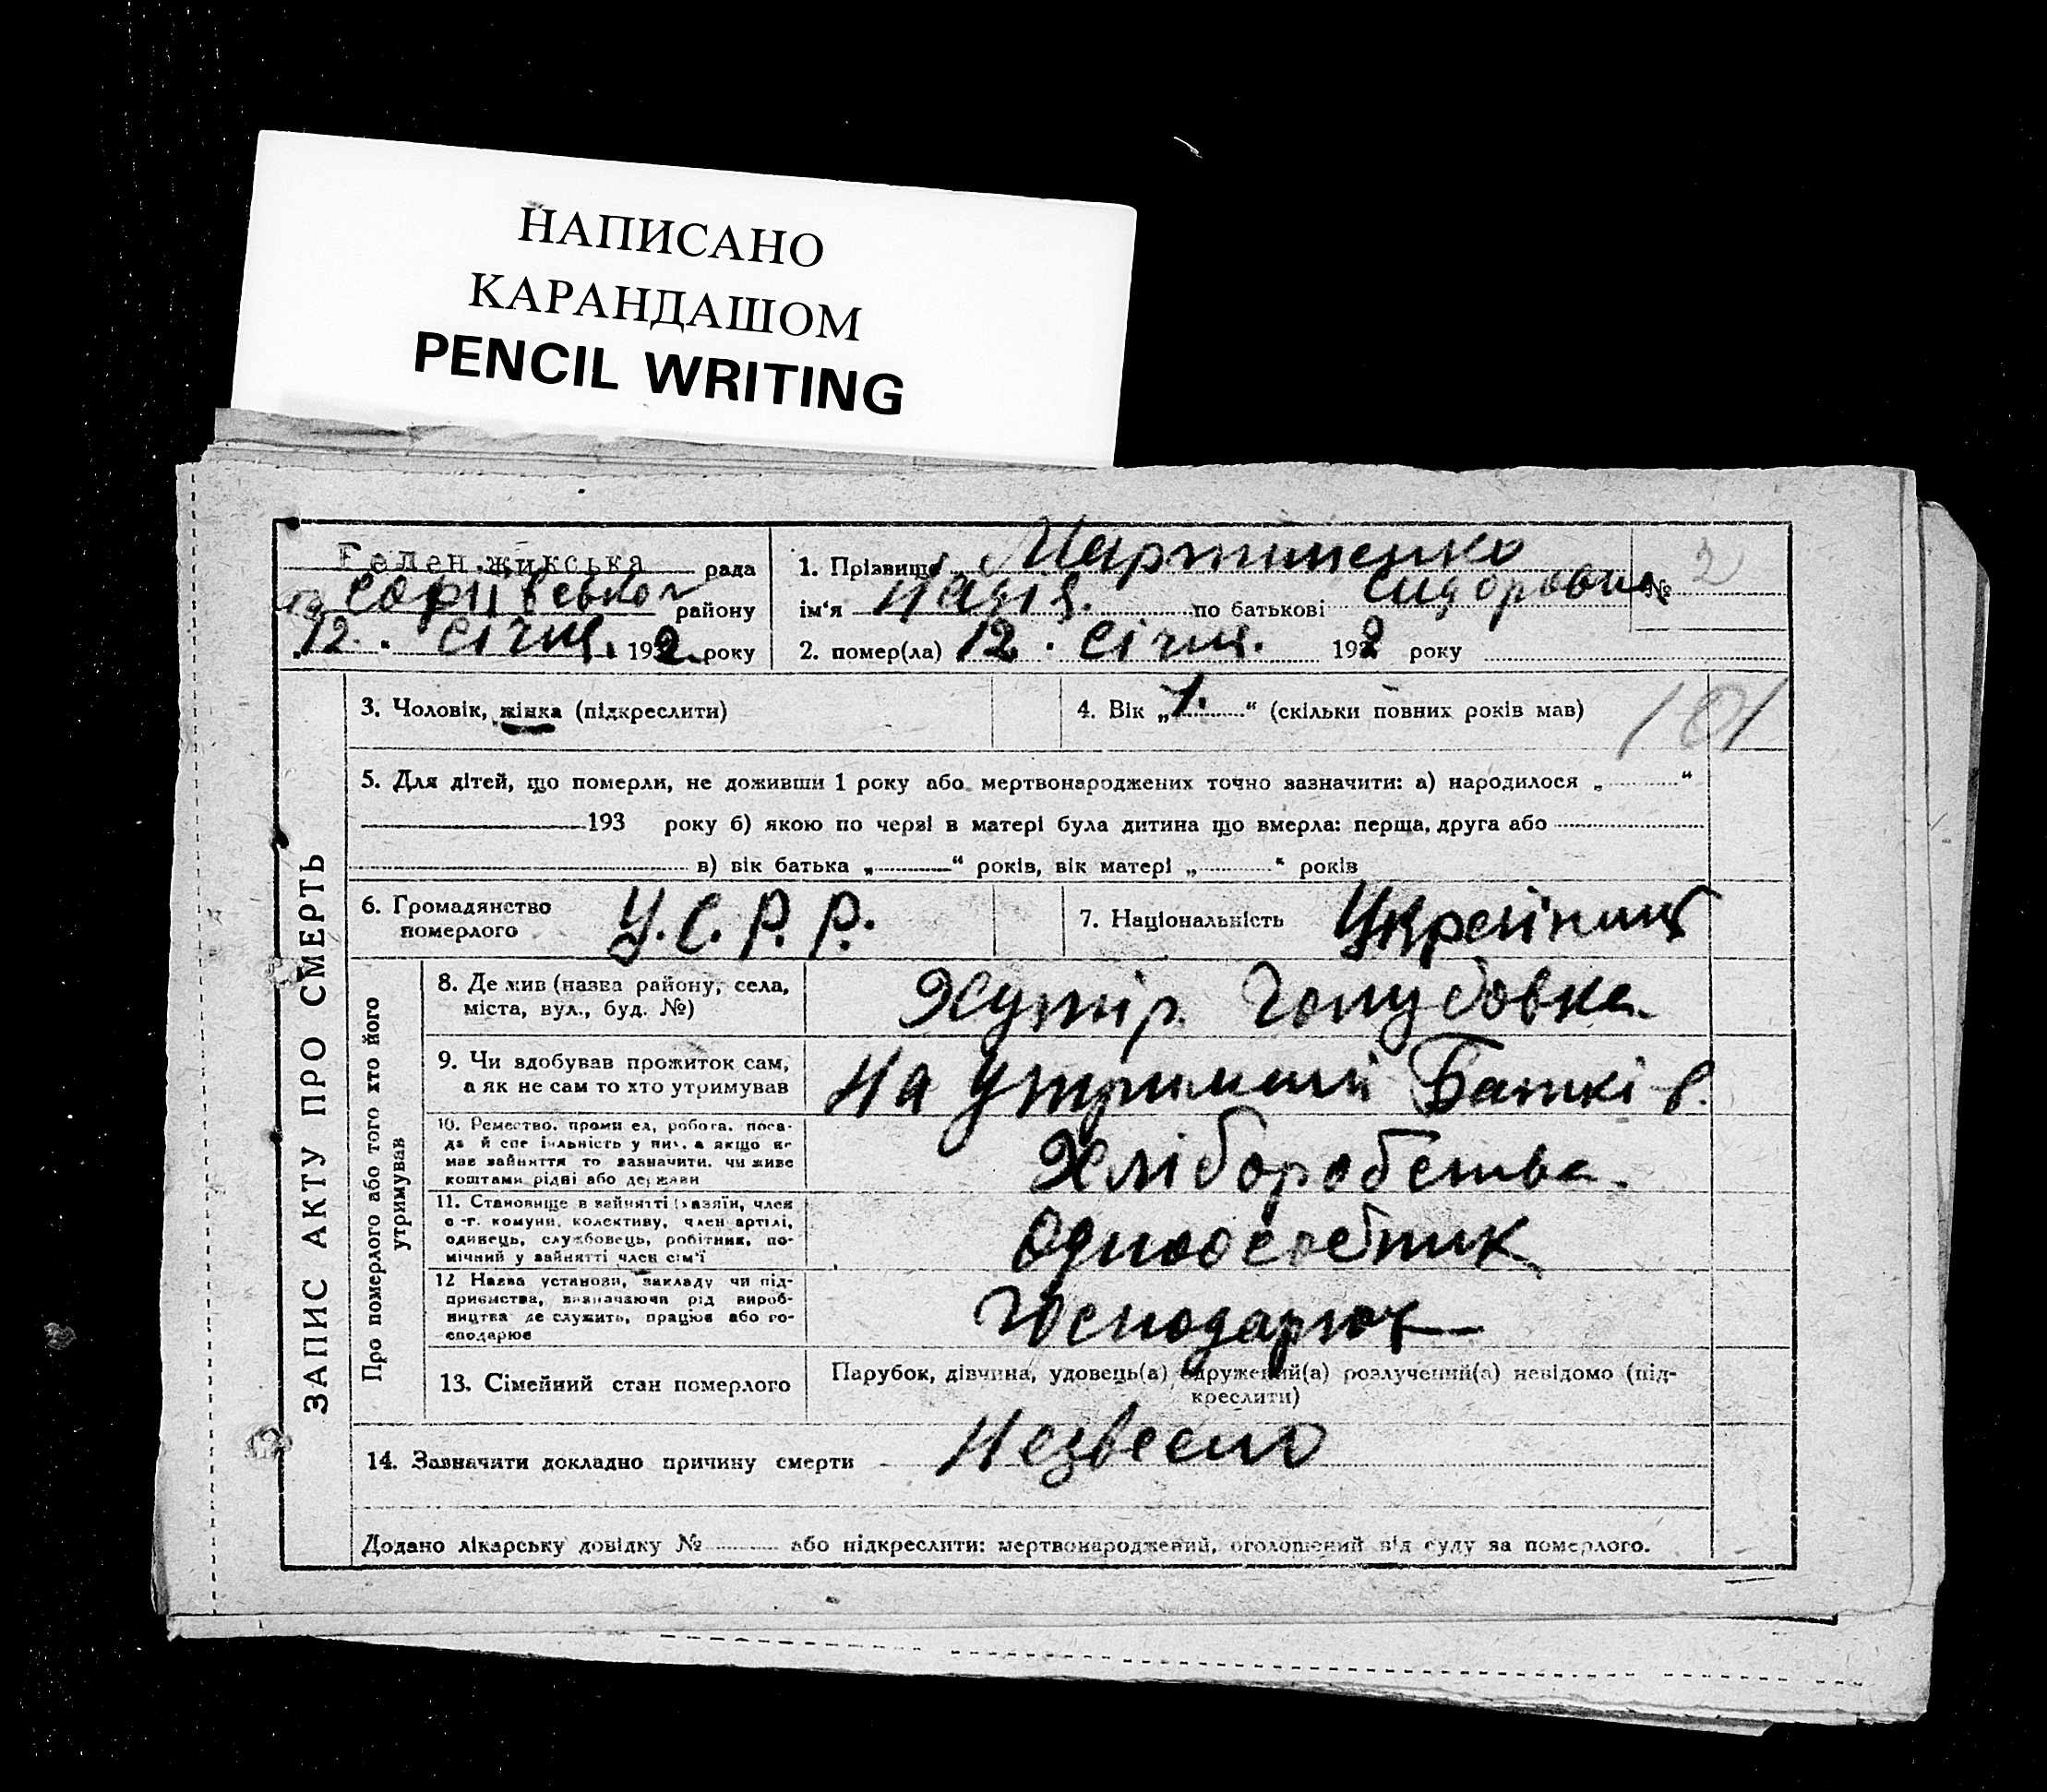 НАПИСАНО
КАРАНДАШОМ
PENCIL WRITING
рада
району
12. Січня. 192 року
1. Прізвище Мартиненко
ім‘я Надія. по батькові Сидоровна №
2
2. помер(ла) 12. Січня. 192 року
3. Чоловік, жінка (підкреслити)
4. Вік „1.“ (скільки повних років мав)
101
5. Для дітей, що померли, не доживши 1 року або мертвонароджених точно зазначити: а) народилося „ “
193 року б) якою по черзі в матері була дитина що вмерла: перша, друга або
в) вік батька „ “ років, вік матері „ “ років
6. Громадянство померлого У.С.Р.Р.
7. Національність
ЗАПИС АКТУ ПРО СМЕРТЬ
Про померлого або того хто його утримував
8. Де жив (назва району, села,
міста, вул., буд. №)
Хутір Голубовка.
9. Чи здобував прожиток сам,
а як не сам то хто утримував
На утриманні Батків.
10. Ремество, промисел, робота, поса-
да й спеціальність у них, а якщо не
має зайняття то зазначити, чи живе
коштами рідні або держави
Хліборобства.
11. Становище в зайнятті (хазяїн, член
с-г. комуни, колективу, член артілі,
одинець, службовець, робітник, по-
мічний у зайнятті член сім‘ї
Одноособник
12 Назва установи, закладу чи під-
приємства, визначаючи рід вироб-
ництва де служить, працює або го-
сподарює
Господарює
13. Сімейний стан померлого
Парубок, дівчина, удовець(а) одружений(а) розлучений(а) невідомо (під-
креслити)
14. Зазначити докладно причину смерти Незвесно
Додано лікарську довідку № або підкреслити: мертвонароджений, оголошений від суду за померлого.